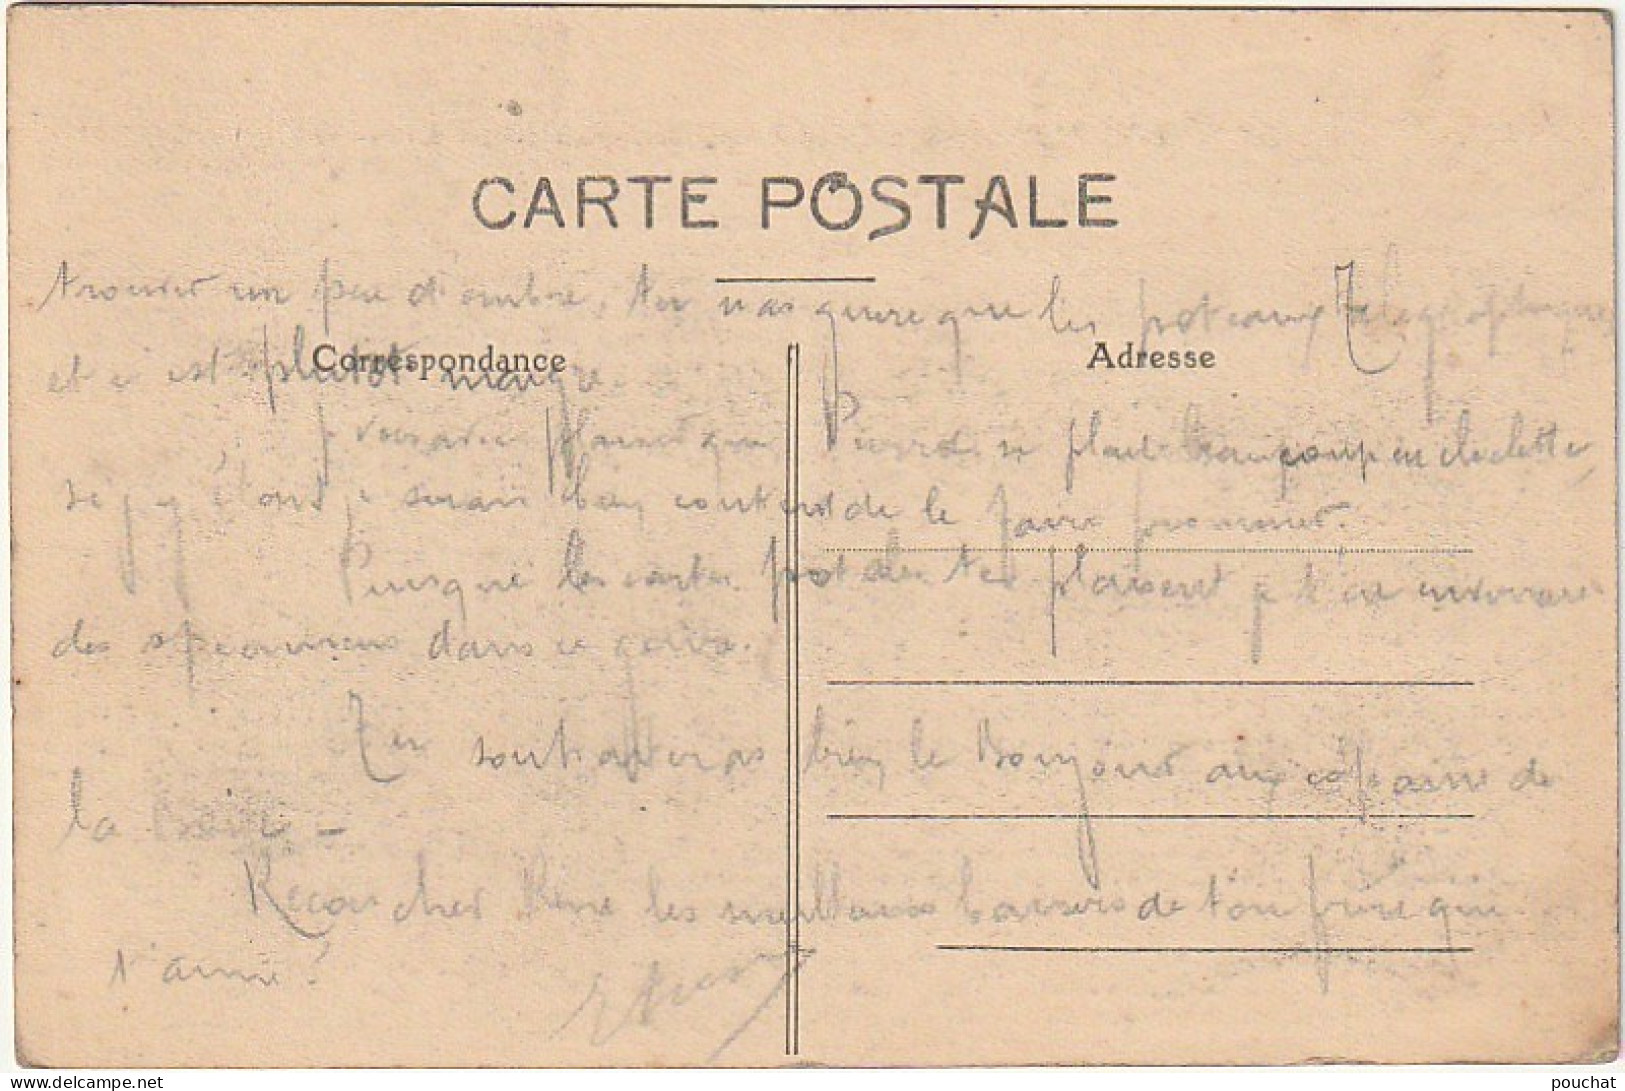 CARTE POSTALE
trouver un peu d'ombre, tu n'as guere que les poteaux Telegraphiques
Correspondance
Adresse
et c'est plutôt maigre.
je vois avec plaisir que se plait beaucoup en
si j'y étais je serais bien content de le faire promener.
Puisque les cartes postales te plaisent je t'en enverrai
des specimens dans ce genre.
Tu souhaiteras bien le Bonjour aux copains de
la
Recois cher René les meilleurs baisers de ton frère qui
t'aime
delcampe.net
pouchat